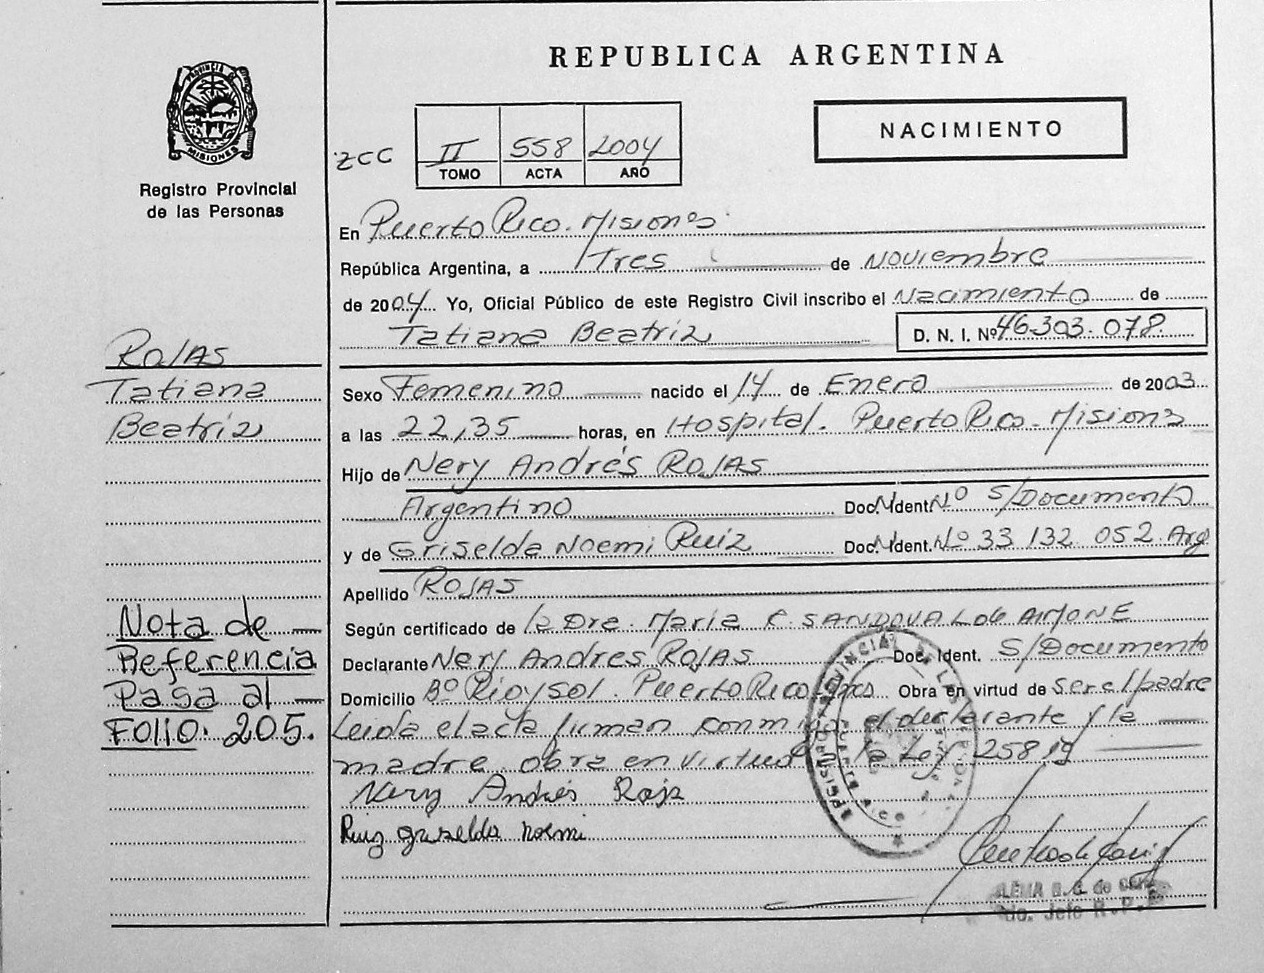 REPUBLICA ARGENTINA
PROVINCIA DE
MISIONES
Registro Provincial
de las Personas
ZCC
II 558 2004
TOMO ACTA AÑO
NACIMIENTO
En Puerto Rico. Misiones
República Argentina, a Tres de Noviembre
de 2004. Yo, Oficial Público de este Registro Civil inscribo el Nacimiento de
Tatiana Beatriz D. N. I. Nº 46.303.078.
ROJAS
Tatiana
Beatriz
Sexo Femenino nacido el 14 de Enero de 2003
a las 22,35 horas, en Hospital. Puerto Rico. Misions
Hijo de Nery Andrés ROJAS
Argentino Doc. Ident. Nº S/Documento
y de Griselda Noemi Ruiz Doc. Ident. Nº 33 132 052 Arg
Apellido ROJAS
Según certificado de la Dra. Maria SANDOVAL de AIMONE
Declarante Nery Andres ROJAS Doc. Ident. S/Documento
Domicilio Bº Rio y sol. Puerto Rico Obra en virtud de ser el padre
Leida el acta firman conmigo el declarante y la
madre. obra en virtud la Ley 25819
Nery Andrés Roja
Ruiz griselda noemi
Nota de
Referencia
Pasa al
FOLIO. 205.
de
Jefe R. P.